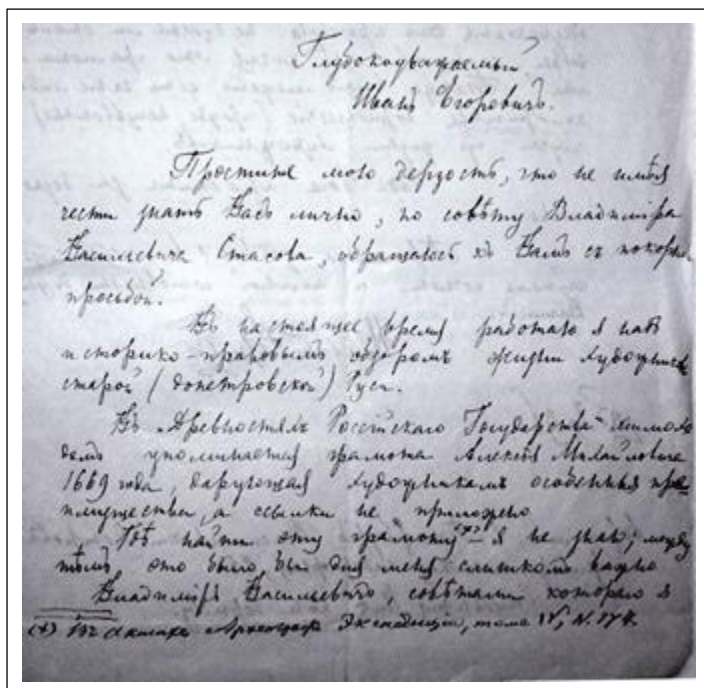 Глубокоуважаемый
Иванъ Егоровичъ.
Простите мою дерзость, что не имѣя
чести знать Васъ лично, по совѣту Владиміра
Васильевича Стасова, обращаюсь къ Вамъ съ покорн
просьбой.
Въ настоящее время работаю я надъ
историко-правовымъ обзоромъ жизни художник
старой (допетровской) Руси.
Въ „Древностяхъ Россійскаго Государства“
упоминается грамота Алексѣя Михайловича
1669 года, дарующая художникамъ особенныя пре-
имущества, а ссылки не приложено
Гдѣ найти эту грамоту (+) – я не знаю; между
тѣмъ, это было бы для меня слишкомъ важно
Владиміръ Васильевичъ, совѣтами котораго я
(+) Въ Актахъ Археограф Экспедиціи, томъ IV, N.